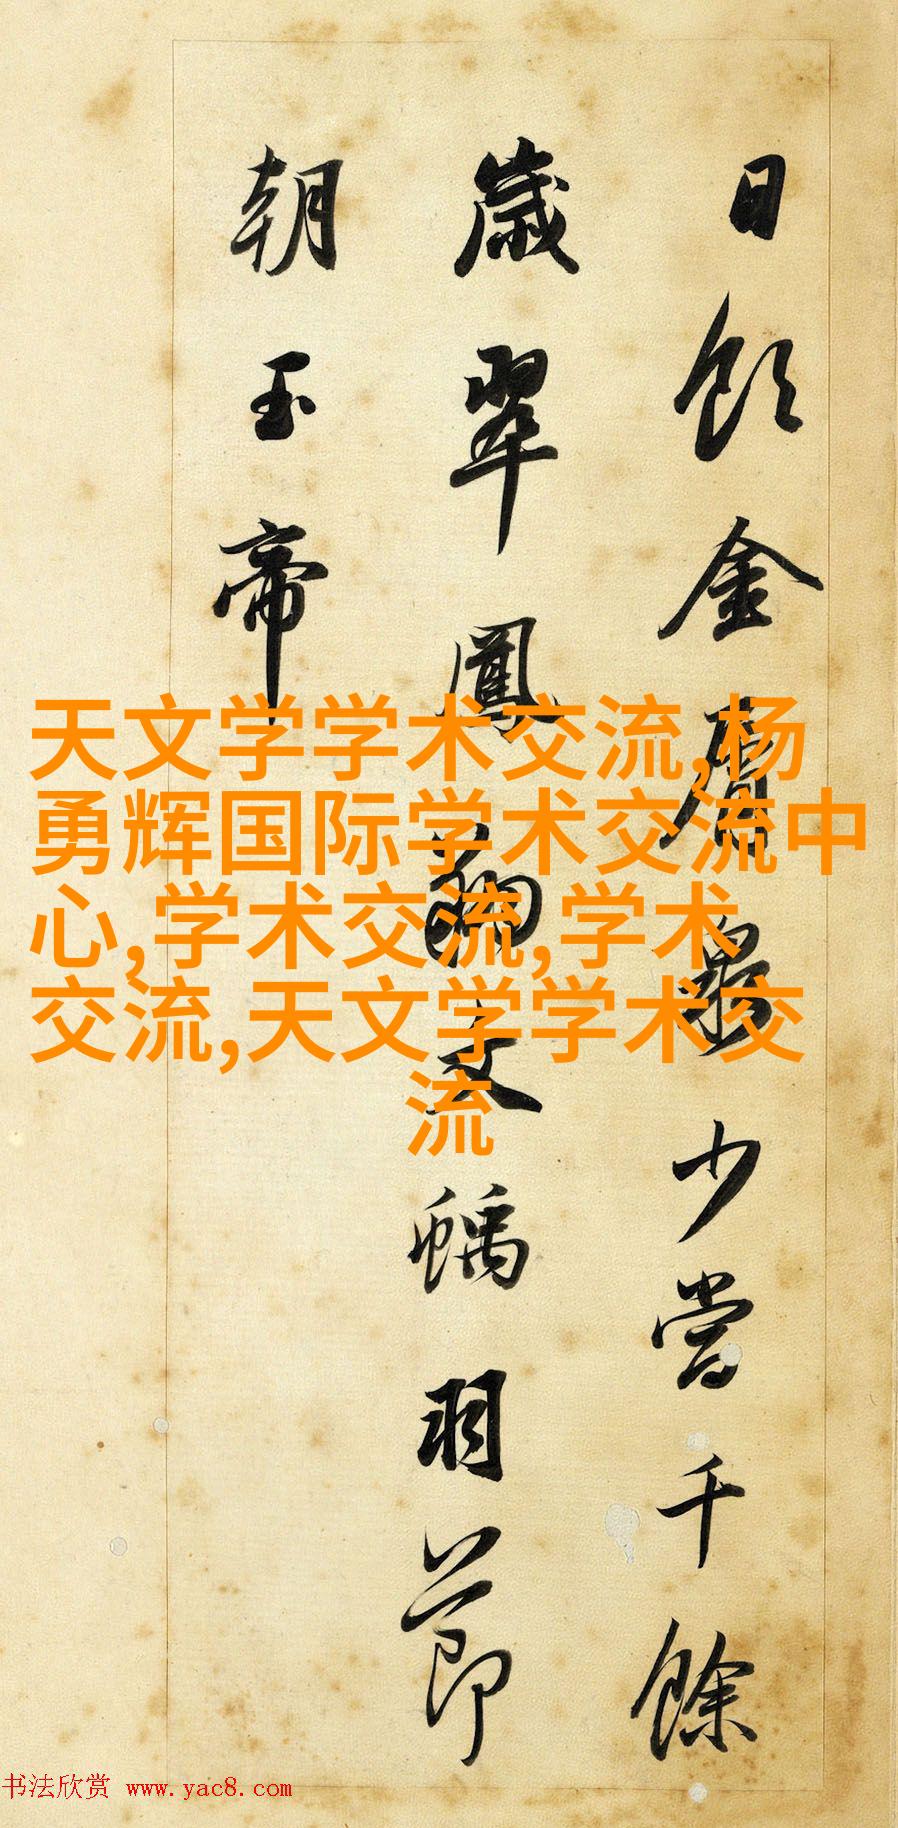 日飲金屑泉少當千餘
歲翠鳳翊文螭羽節
朝玉帝
天文学学术交流,杨
勇辉国际学术交流中
心,学术交流,学术
交流,天文学学术交
流
书法欣赏 www.yac8.com